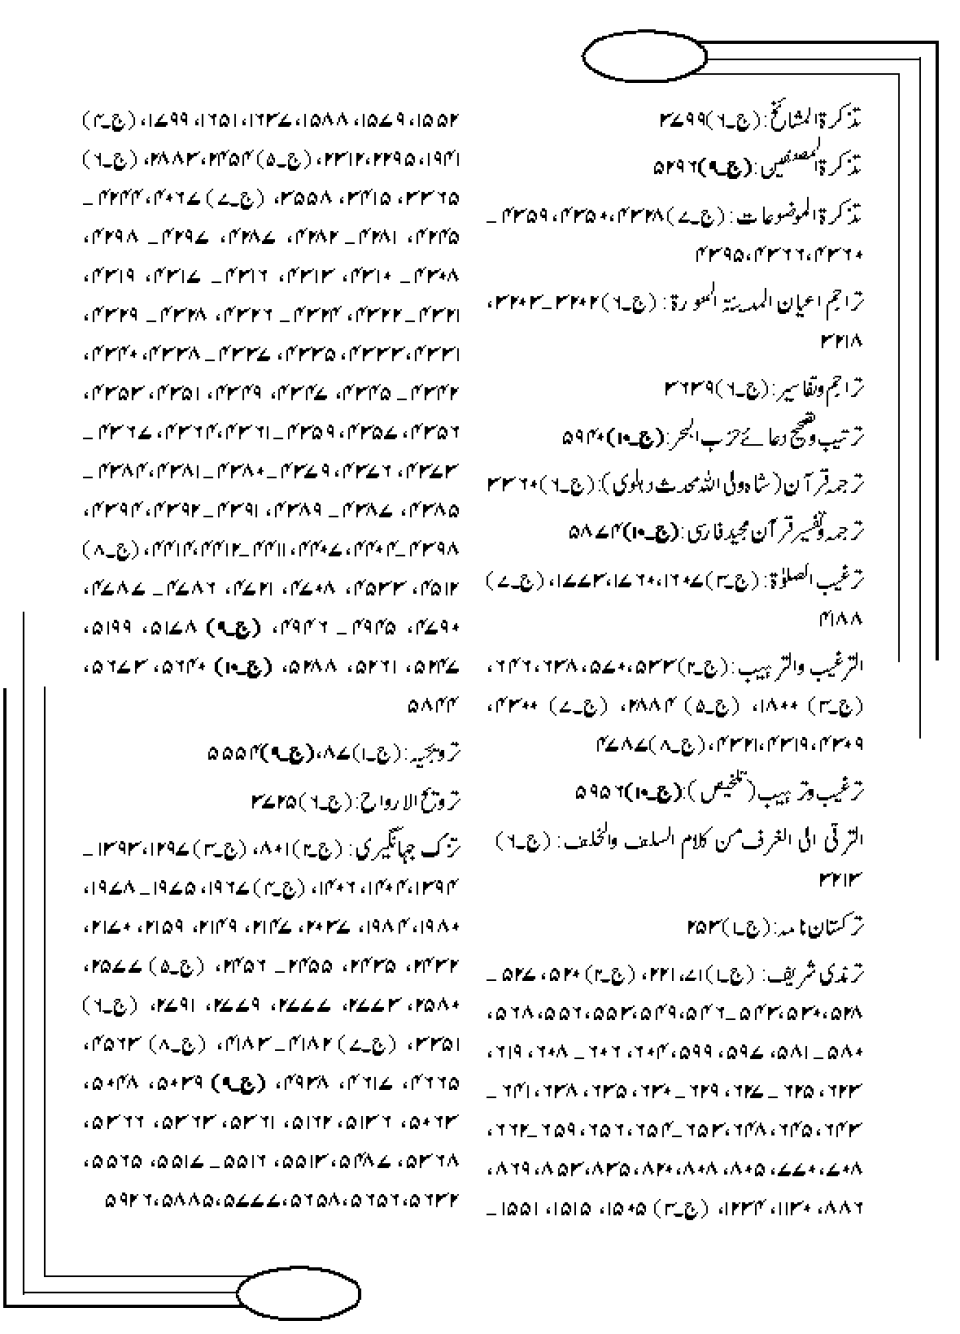 تذکرۃ المشائخ:(ج۔۶)۳۷۹۹
تذکرۃ المصنفین:(ج۔۹)۵۲۹۶
تذکرۃ الموضوعات:(ج۔۷)۴۳۲۸، ۴۳۵۰، ۴۳۵۹۔
۴۳۶۰،۴۳۶۶،۴۳۹۵
تراجم اعیان المدینۃ المنورۃ:(ج۔۶)۳۲۰۲۔۳۲۰۳،
۳۲۱۸
تراجم وتفاسیر:(ج۔۶)۳۶۳۹
ترتیب وتصحیح دعائے حزب البحر:(ج۔۱۰)۵۹۴۰
ترجمہ قرآن(شاہ ولی اللہ محدث دہلوی):(ج۔۶)۳۳۶۰
ترجمہ وتفسیر قرآن مجید فارسی:(ج۔۱۰)۵۸۷۴
ترغیب الصلوٰۃ:(ج۔۳)۱۶۰۷،۱۶۷۰،۱۷۷۳،(ج۔۷)
۴۱۸۸
الترغیب والترہیب:(ج۔۲)۵۳۳،۵۷۰،۶۳۸،۶۴۶،
(ج۔۳) ۱۸۰۰، (ج۔۵) ۲۸۸۴، (ج۔۷) ۴۳۰۰،
۴۳۰۹،۴۳۱۹،۴۳۲۱،(ج۔۸)۴۷۸۷
ترغیب وترہیب(تلخیص):(ج۔۱۰)۵۹۵۶
الترقی الی الغرف من کلام السلف والخلف: (ج۔۶)
۳۲۱۳
ترکستان نامہ:(ج۔۱)۲۵۳
ترمذی شریف: (ج۔۱)۷۱، ۲۲۱، (ج۔۲)۵۲۰، ۵۲۷۔
۵۲۸،۵۳۰،۵۴۳۔۵۴۶،۵۴۹،۵۵۳،۵۵۶،۵۶۸،
۵۸۰۔۵۸۱، ۵۹۷، ۵۹۹، ۶۰۴، ۶۰۶۔۶۰۸، ۶۱۹،
۶۲۳، ۶۲۵۔۶۲۷، ۶۲۹۔۶۳۰، ۶۳۵، ۶۳۸، ۶۴۱۔
۶۴۳،۶۴۵،۶۴۸،۶۵۳۔۶۵۴،۶۵۶،۶۵۹۔۶۶۲،
۷۰۸،۷۷۰،۸۰۵،۸۰۸،۸۲۰،۸۳۵،۸۵۳،۸۶۹،
۸۸۶، ۱۱۳۰، ۱۲۳۴، (ج۔۳) ۱۵۰۵، ۱۵۱۵، ۱۵۵۱۔
۱۵۵۲، ۱۵۷۹، ۱۵۸۸، ۱۶۳۷، ۱۶۵۱، ۱۷۹۹، (ج۔۴)
۱۹۴۱، ۲۲۹۵، ۲۳۱۲، (ج۔۵)۲۴۵۴، ۲۸۸۳، (ج۔۶)
۳۳۶۵، ۳۴۱۵، ۳۵۵۸، (ج۔۷)۴۰۶۷، ۴۲۴۴۔
۴۲۴۵، ۴۲۸۱۔۴۲۸۲، ۴۲۸۷، ۴۲۹۷۔۴۲۹۸،
۴۳۰۸۔۴۳۱۰، ۴۳۱۳، ۴۳۱۶۔۴۳۱۷، ۴۳۱۹،
۴۳۲۱۔۴۳۲۲، ۴۳۲۴۔۴۳۲۶، ۴۳۲۸۔۴۳۲۹،
۴۳۳۱،۴۳۳۳، ۴۳۳۵، ۴۳۳۷۔۴۳۳۸، ۴۳۴۰،
۴۳۴۲۔۴۳۴۵، ۴۳۴۷، ۴۳۴۹، ۴۳۵۱، ۴۳۵۳،
۴۳۵۶، ۴۳۵۷،۴۳۵۹۔۴۳۶۱،۴۳۶۴،۴۳۶۷۔
۴۳۷۳، ۴۳۷۶، ۴۳۷۹۔۴۳۸۰،۴۳۸۱۔۴۳۸۴،
۴۳۸۵، ۴۳۸۷۔۴۳۸۹، ۴۳۹۱۔۴۳۹۲، ۴۳۹۴،
۴۳۹۸۔۴۴۰۰،۴۴۰۷، ۴۴۱۱۔۴۴۱۲،۴۴۱۴، (ج۔۸)
۴۵۱۲، ۴۵۳۳، ۴۷۰۸، ۴۷۲۱، ۴۷۸۶۔۴۷۸۷،
۴۷۹۰، ۴۹۴۵۔۴۹۴۶، (ج۔۹) ۵۱۷۸، ۵۱۹۹،
۵۲۴۷، ۵۲۶۱، ۵۲۸۸، (ج۔۱۰) ۵۶۴۰، ۵۶۷۳،
۵۸۴۴
ترویحیہ:(ج۔۱)۸۷،(ج۔۹)۵۵۵۴
ترویح الارواح:(ج۔۶)۳۷۲۵
تزک جہانگیری: (ج۔۲)۸۰۱، (ج۔۳)۱۲۹۷، ۱۳۹۳۔
۱۳۹۴،۱۴۰۴، ۱۴۰۶، (ج۔۴)۱۹۶۷، ۱۹۷۵۔۱۹۷۸،
۱۹۸۰، ۱۹۸۴، ۲۰۳۷، ۲۱۴۷، ۲۱۴۹، ۲۱۵۹، ۲۱۷۰،
۲۴۳۲، ۲۴۳۵، ۲۴۵۵۔۲۴۵۶، (ج۔۵) ۲۵۷۷،
۲۵۸۰، ۲۷۷۳، ۲۷۷۷، ۲۷۷۹، ۲۷۹۱، (ج۔۶)
۳۳۵۱، (ج۔۷)۴۱۸۲۔۴۱۸۳، (ج۔۸) ۴۵۶۳،
۴۶۶۵، ۴۷۱۶، ۴۹۳۸، (ج۔۹) ۵۰۳۹، ۵۰۴۸،
۵۰۶۳، ۵۱۳۶، ۵۱۶۲، ۵۳۶۱، ۵۳۶۳، ۵۳۶۶،
۵۳۶۸، ۵۴۸۷، ۵۵۱۳، ۵۵۱۶۔۵۵۱۷، ۵۵۶۵،
۵۶۳۲،۵۶۵۶،۵۶۵۸،۵۷۷۷،۵۸۸۵،۵۹۲۶